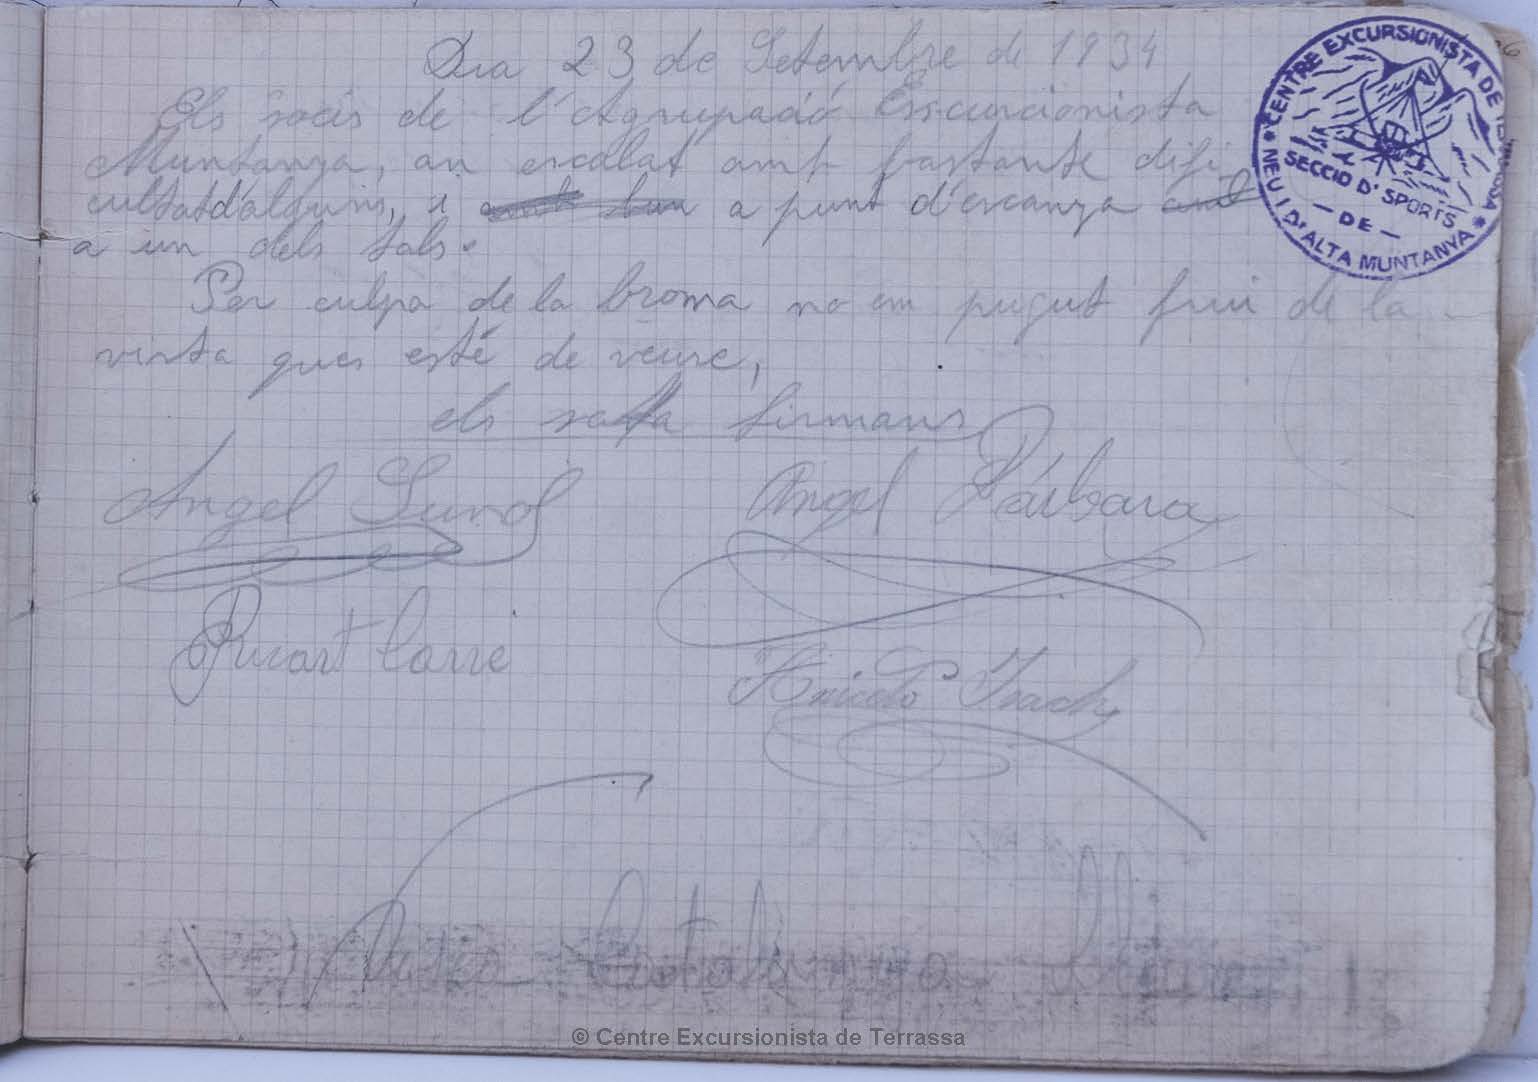 Dia 23 de Setembre de 1934
Els socis de l'Agrupació Esscurcionista
Muntanya, an escalat amb bastante difi
cultat d'alguns, i a punt d'escanya
a un dels tals.
Per culpa de la broma no em pugut fruir de la
vista ques esté de veure,
els sota firmans
Angel Sunol
Angel Bárbara
Ricart Carré
Aniceto
Visca Catalunya Lliure!
CENTRE EXCURSIONISTA DE TERRASSA
SECCIÓ D'SPORTS
— DE —
NEU I D'ALTA MUNTANYA
© Centre Excursionista de Terrassa